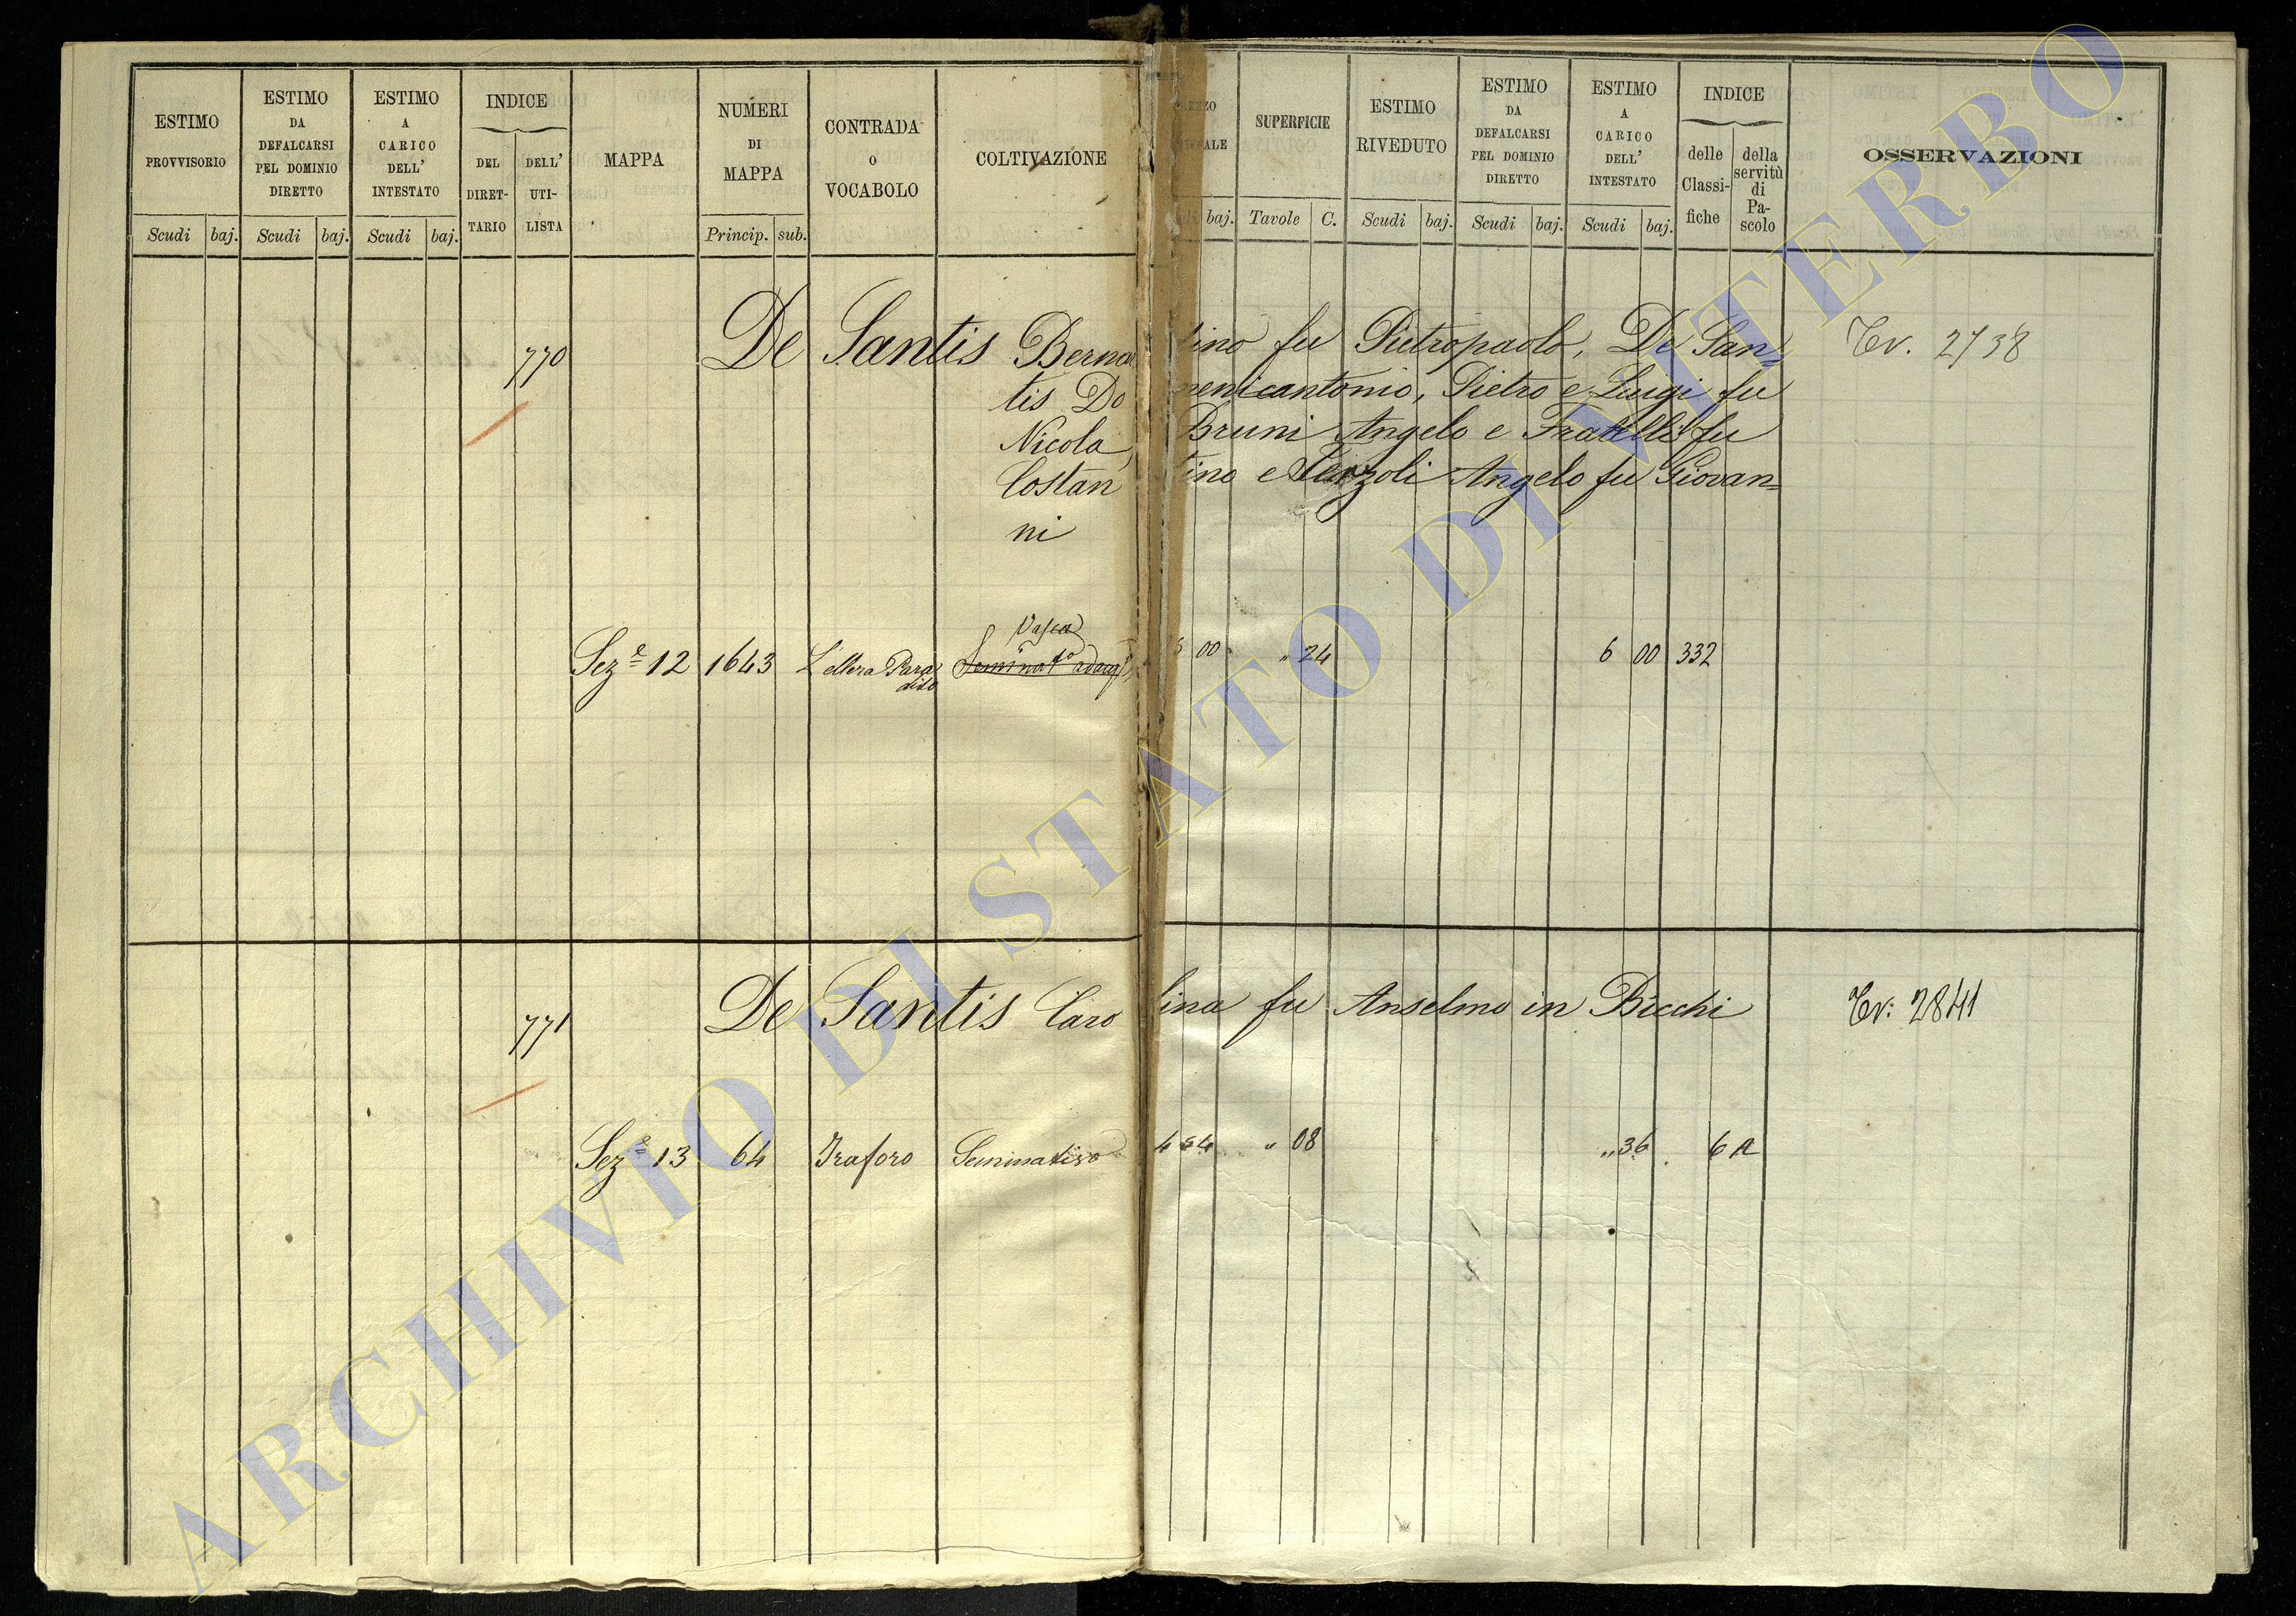 ESTIMO PROVVISORIO
Scudi baj.
ESTIMO DA DEFALCARSI PEL DOMINIO DIRETTO
Scudi baj.
ESTIMO A CARICO DELL' INTESTATO
Scudi baj.
INDICE
DEL DIRET-TARIO
DELL' UTI-LISTA
MAPPA
NUMERI DI MAPPA
Princip. sub.
CONTRADA O VOCABOLO
COLTIVAZIONE
baj.
SUPERFICIE
Tavole C.
ESTIMO RIVEDUTO
Scudi baj.
ESTIMO DA DEFALCARSI PEL DOMINIO DIRETTO
Scudi baj.
ESTIMO A CARICO DELL' INTESTATO
Scudi baj.
INDICE
delle Classi-fiche
della servitù di Pa-scolo
OSSERVAZIONI
770 De Santis Bernar tino fu Pietropaolo, De San= Tv. 2738
tis Do menicantonio, Pietro e Luigi fu
Nicola, Bruni Angelo e Fratelli fu
Costan tino e Terzoli Angelo fu Giovan=
ni
Vasca
Sez.e 12 1643 L'ellera Paradiso 6 00 " 24 6 00 332
771 De Santis Caro lina fu Anselmo in Bicchi Tv: 2841
Sez.e 13 64 Traforo Seminativo 4 54 " 08 " 36 6 A
ARCHIVIO DI STATO DI VITERBO